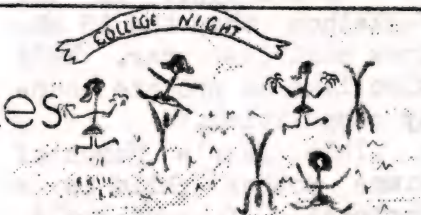 COLLEGE NIGHT
es